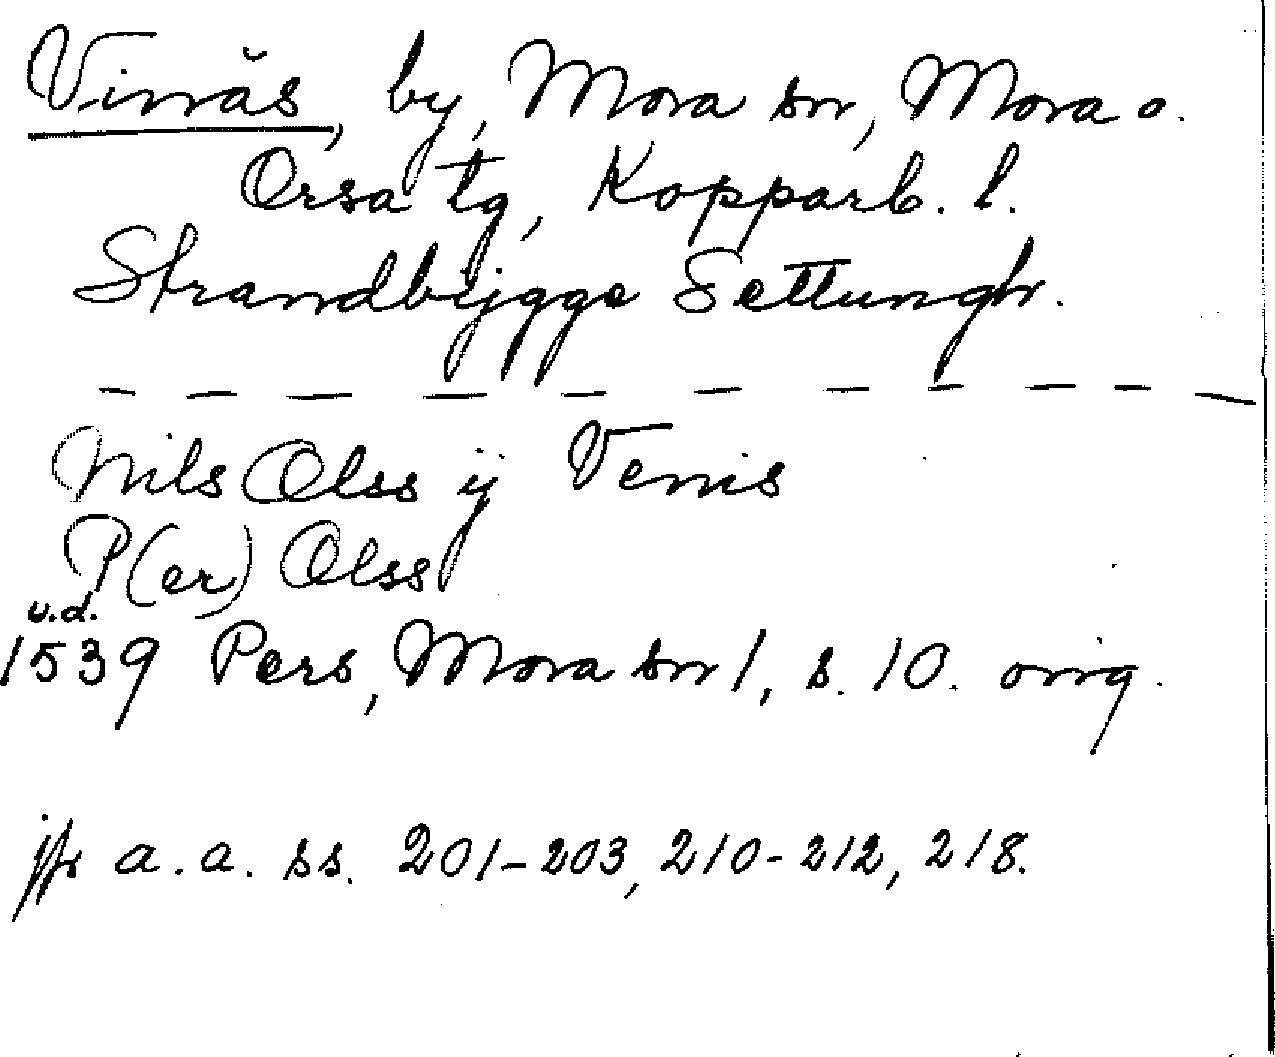 Vinäs, by, Mora sn, Mora o.
Orsa tg, Kopparb. l.
Strandbygge Settungh.
— — — — — — — — — — —
Nils Olss ÿ Venis
P(er) Olss
u.d.
1539 Pers, Mora sn 1, s. 10. orig.
jfr a.a. ss. 201-203, 210-212, 218.